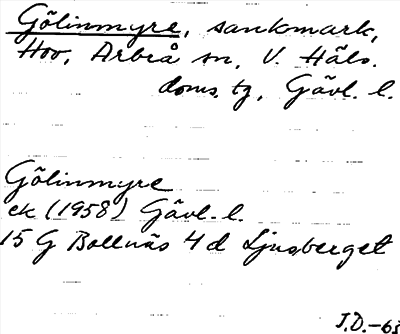 Gölinmyre, sankmark,
Hov, Arbrå sn, V. Häls.
doms. tg, Gävl. l.
Gölinmyre
ek (1958) Gävl. l.
15 G Bollnäs 4 d Ljusberget
J.D.-63